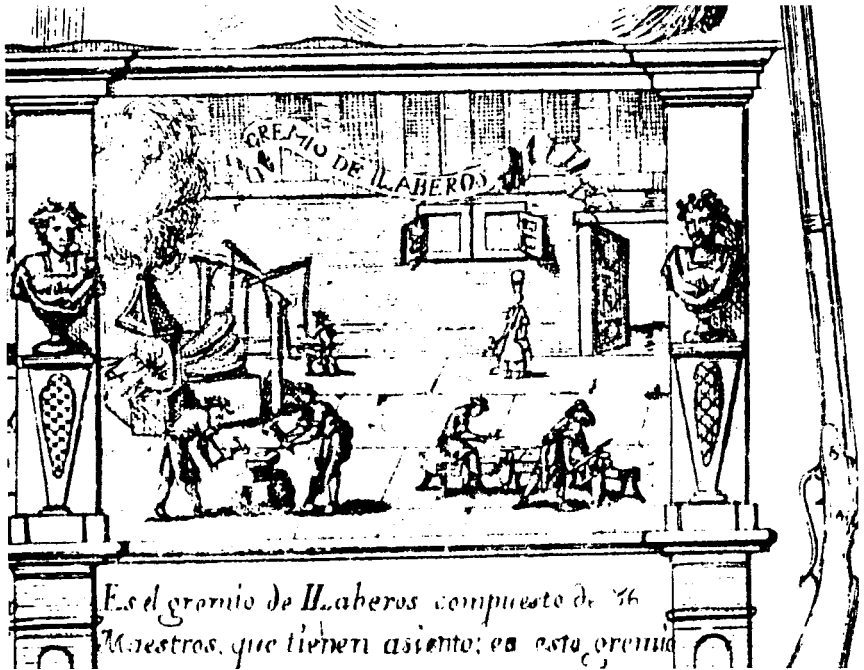 GREMIO DE ILABEROS
Es el gremio de ILaberos compuesto de
Maestros, que tienen asiento; en este gremio